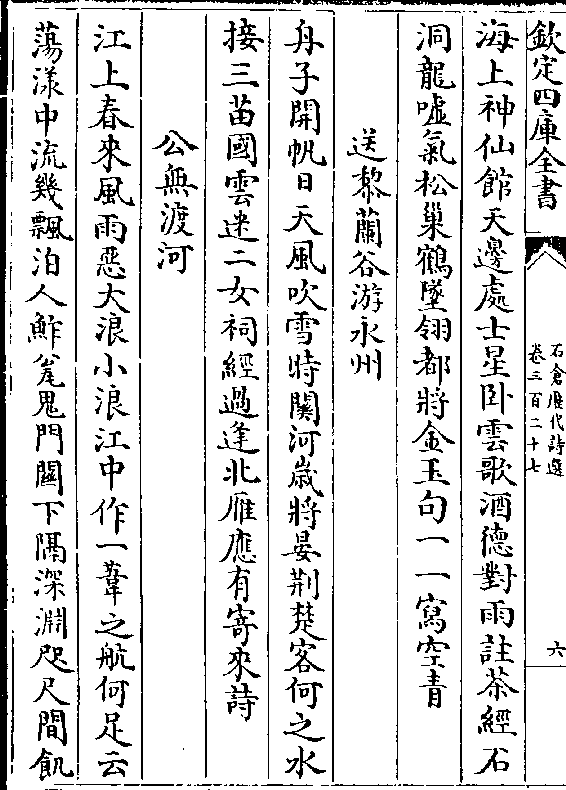 欽定四庫全書
石倉歷代詩選
卷三百二十七
六
海上神仙館天邊處士星卧雲歌酒德對雨註茶經石
洞龍嘘氣松巢鶴墜翎都將金玉句一一寫空青
送黎蘭谷游永州
舟子開帆日天風吹雪時關河歲將晏荆楚客何之水
接三苗國雲迷二女祠經過逢北雁應有寄來詩
公無渡河
江上春來風雨惡大浪小浪江中作一葦之航何足云
蕩漾中流幾飄泊人鮓瓮鬼門關下隔深淵咫尺間飢